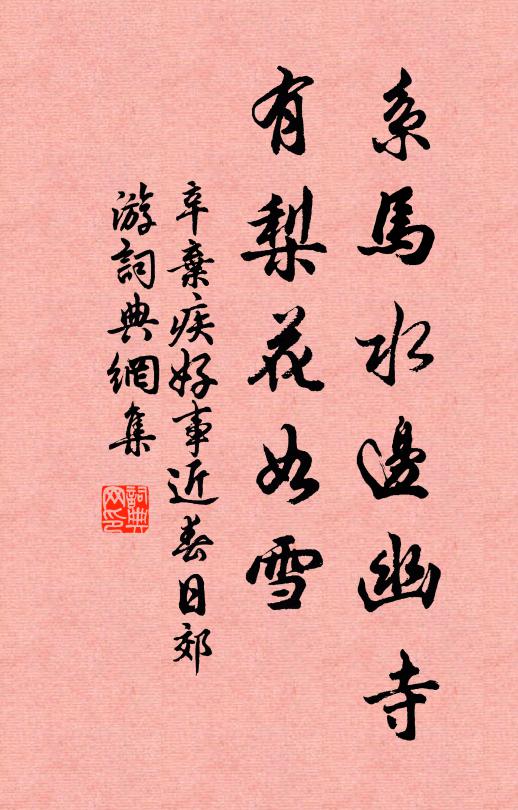 系馬水邊幽寺
有梨花如雪
辛棄疾好事近春日郊
游詞典網集
詞典
网印